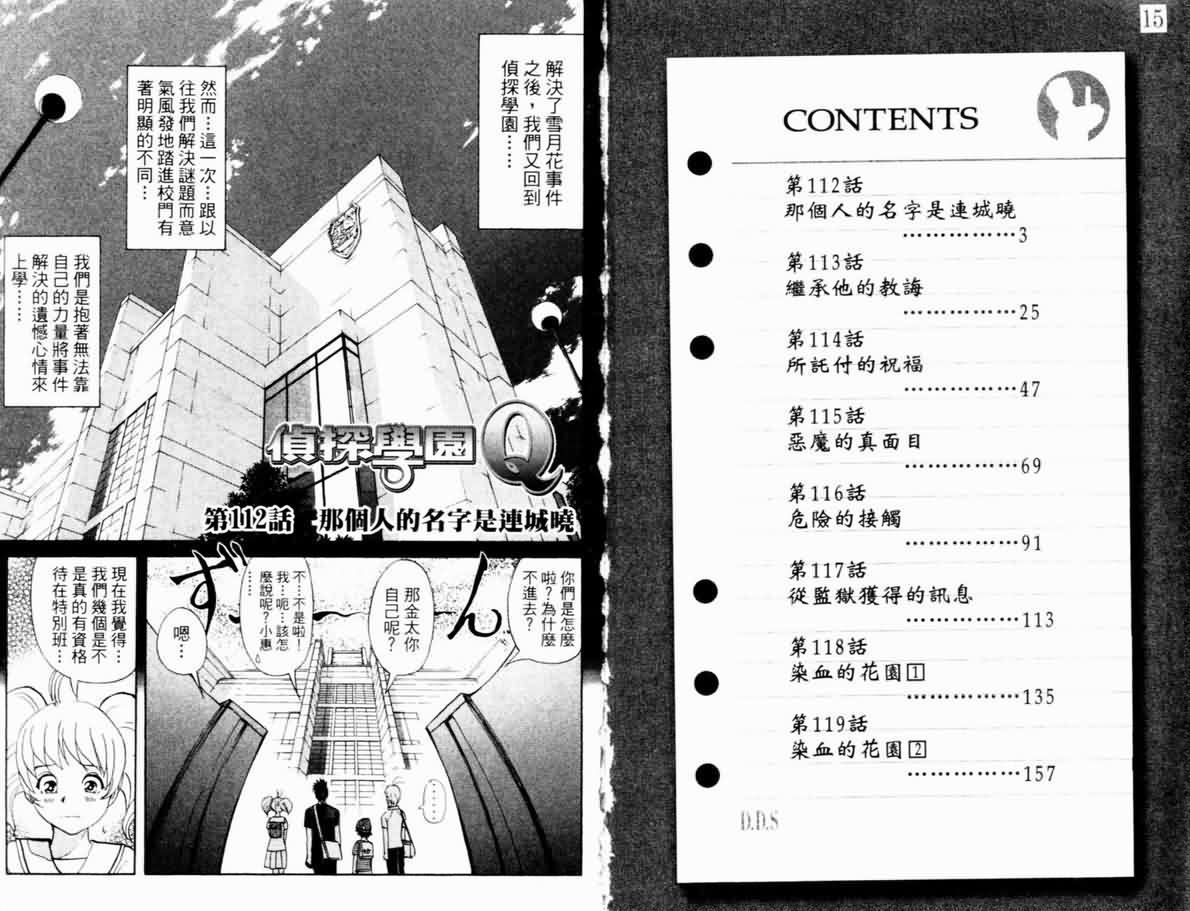 15
CONTENTS
第112話
那個人的名字是連城曉
………………3
第113話
繼承他的教誨
………………25
第114話
所託付的祝福
………………47
第115話
惡魔的真面目
………………69
第116話
危險的接觸
………………91
第117話
從監獄獲得的訊息
………………113
第118話
染血的花園1
………………135
第119話
染血的花園2
………………157
D.D.S
解決了雪月花事件
之後，我們又回到
偵探學園……
然而…這一次…跟以
往我們解決謎題而意
氣風發地踏進校門有
著明顯的不同…
我們是抱著無法靠
自己的力量將事件
解決的遺憾心情來
上學……
偵探學園Q
第112話 那個人的名字是連城曉
你們是怎麼
啦？為什麼
不進去？
那金太你
自己呢？
不…不是啦！
我…呃…該怎
麼說呢？小惠
……
嗯…
ずーん
……
現在我覺得…
我們幾個是不
是真的有資格
待在特別班…